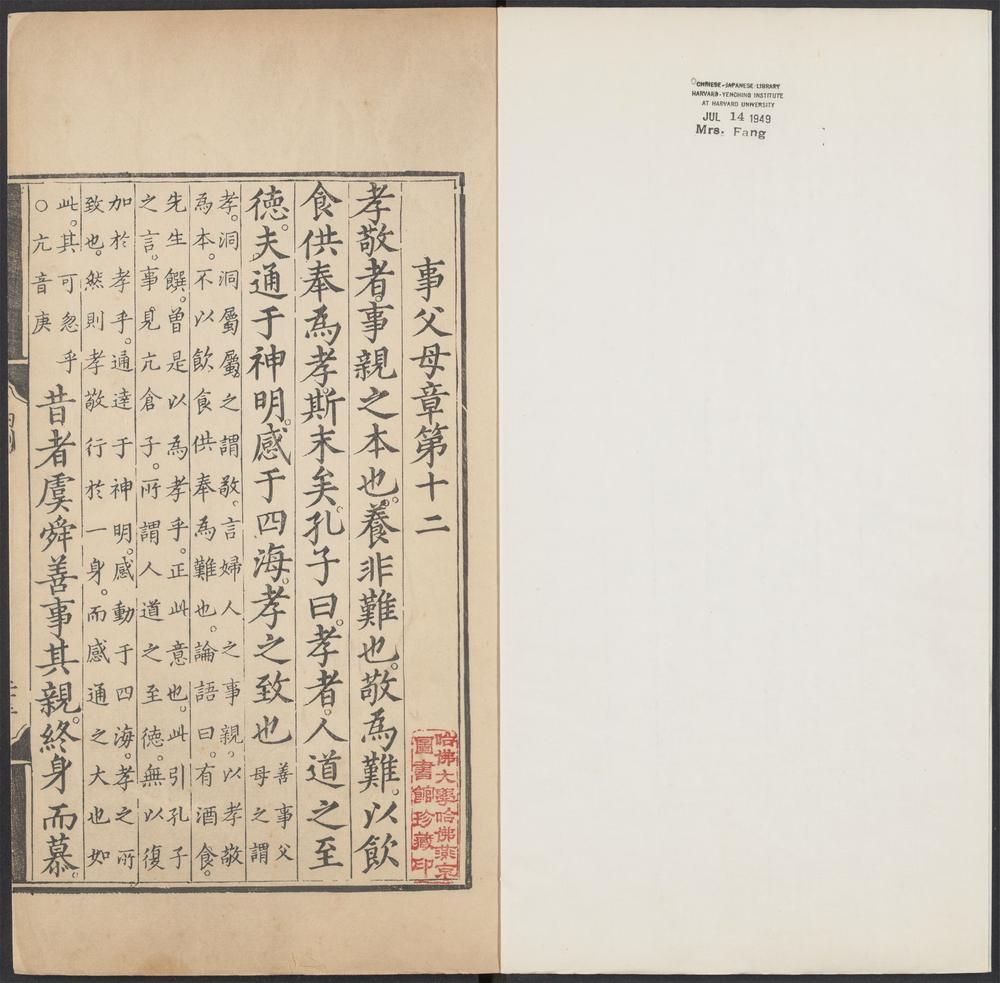 CHINESE-JAPANESE LIBRARY
HARVARD-YENCHING INSTITUTE
AT HARVARD UNIVERSITY
JUL 14 1949
Mrs. Fang
事父母章第十二
哈佛大學哈佛燕京
圖書館珍藏印
孝敬者。事親之本也。養非難也。敬爲難。以飲
食供奉爲孝。斯末矣。孔子曰。孝者。人道之至
德。夫通于神明。感于四海。孝之致也
善事父
母之謂
孝。洞洞屬屬。之謂敬。言婦人之事親。以孝敬
爲本。不以飲食供奉爲難也。論語曰。有酒食。
先生饌。曾是以爲孝乎。正此意也。此引孔子
之言。事見亢倉子。所謂人道之至德。無以復
加於孝乎。通達于神明。感動于四海。孝之所
致也。然則孝敬行於一身。而感通之大也如
此。其可忽乎
○亢音庚
昔者虞舜善事其親。終身而慕。